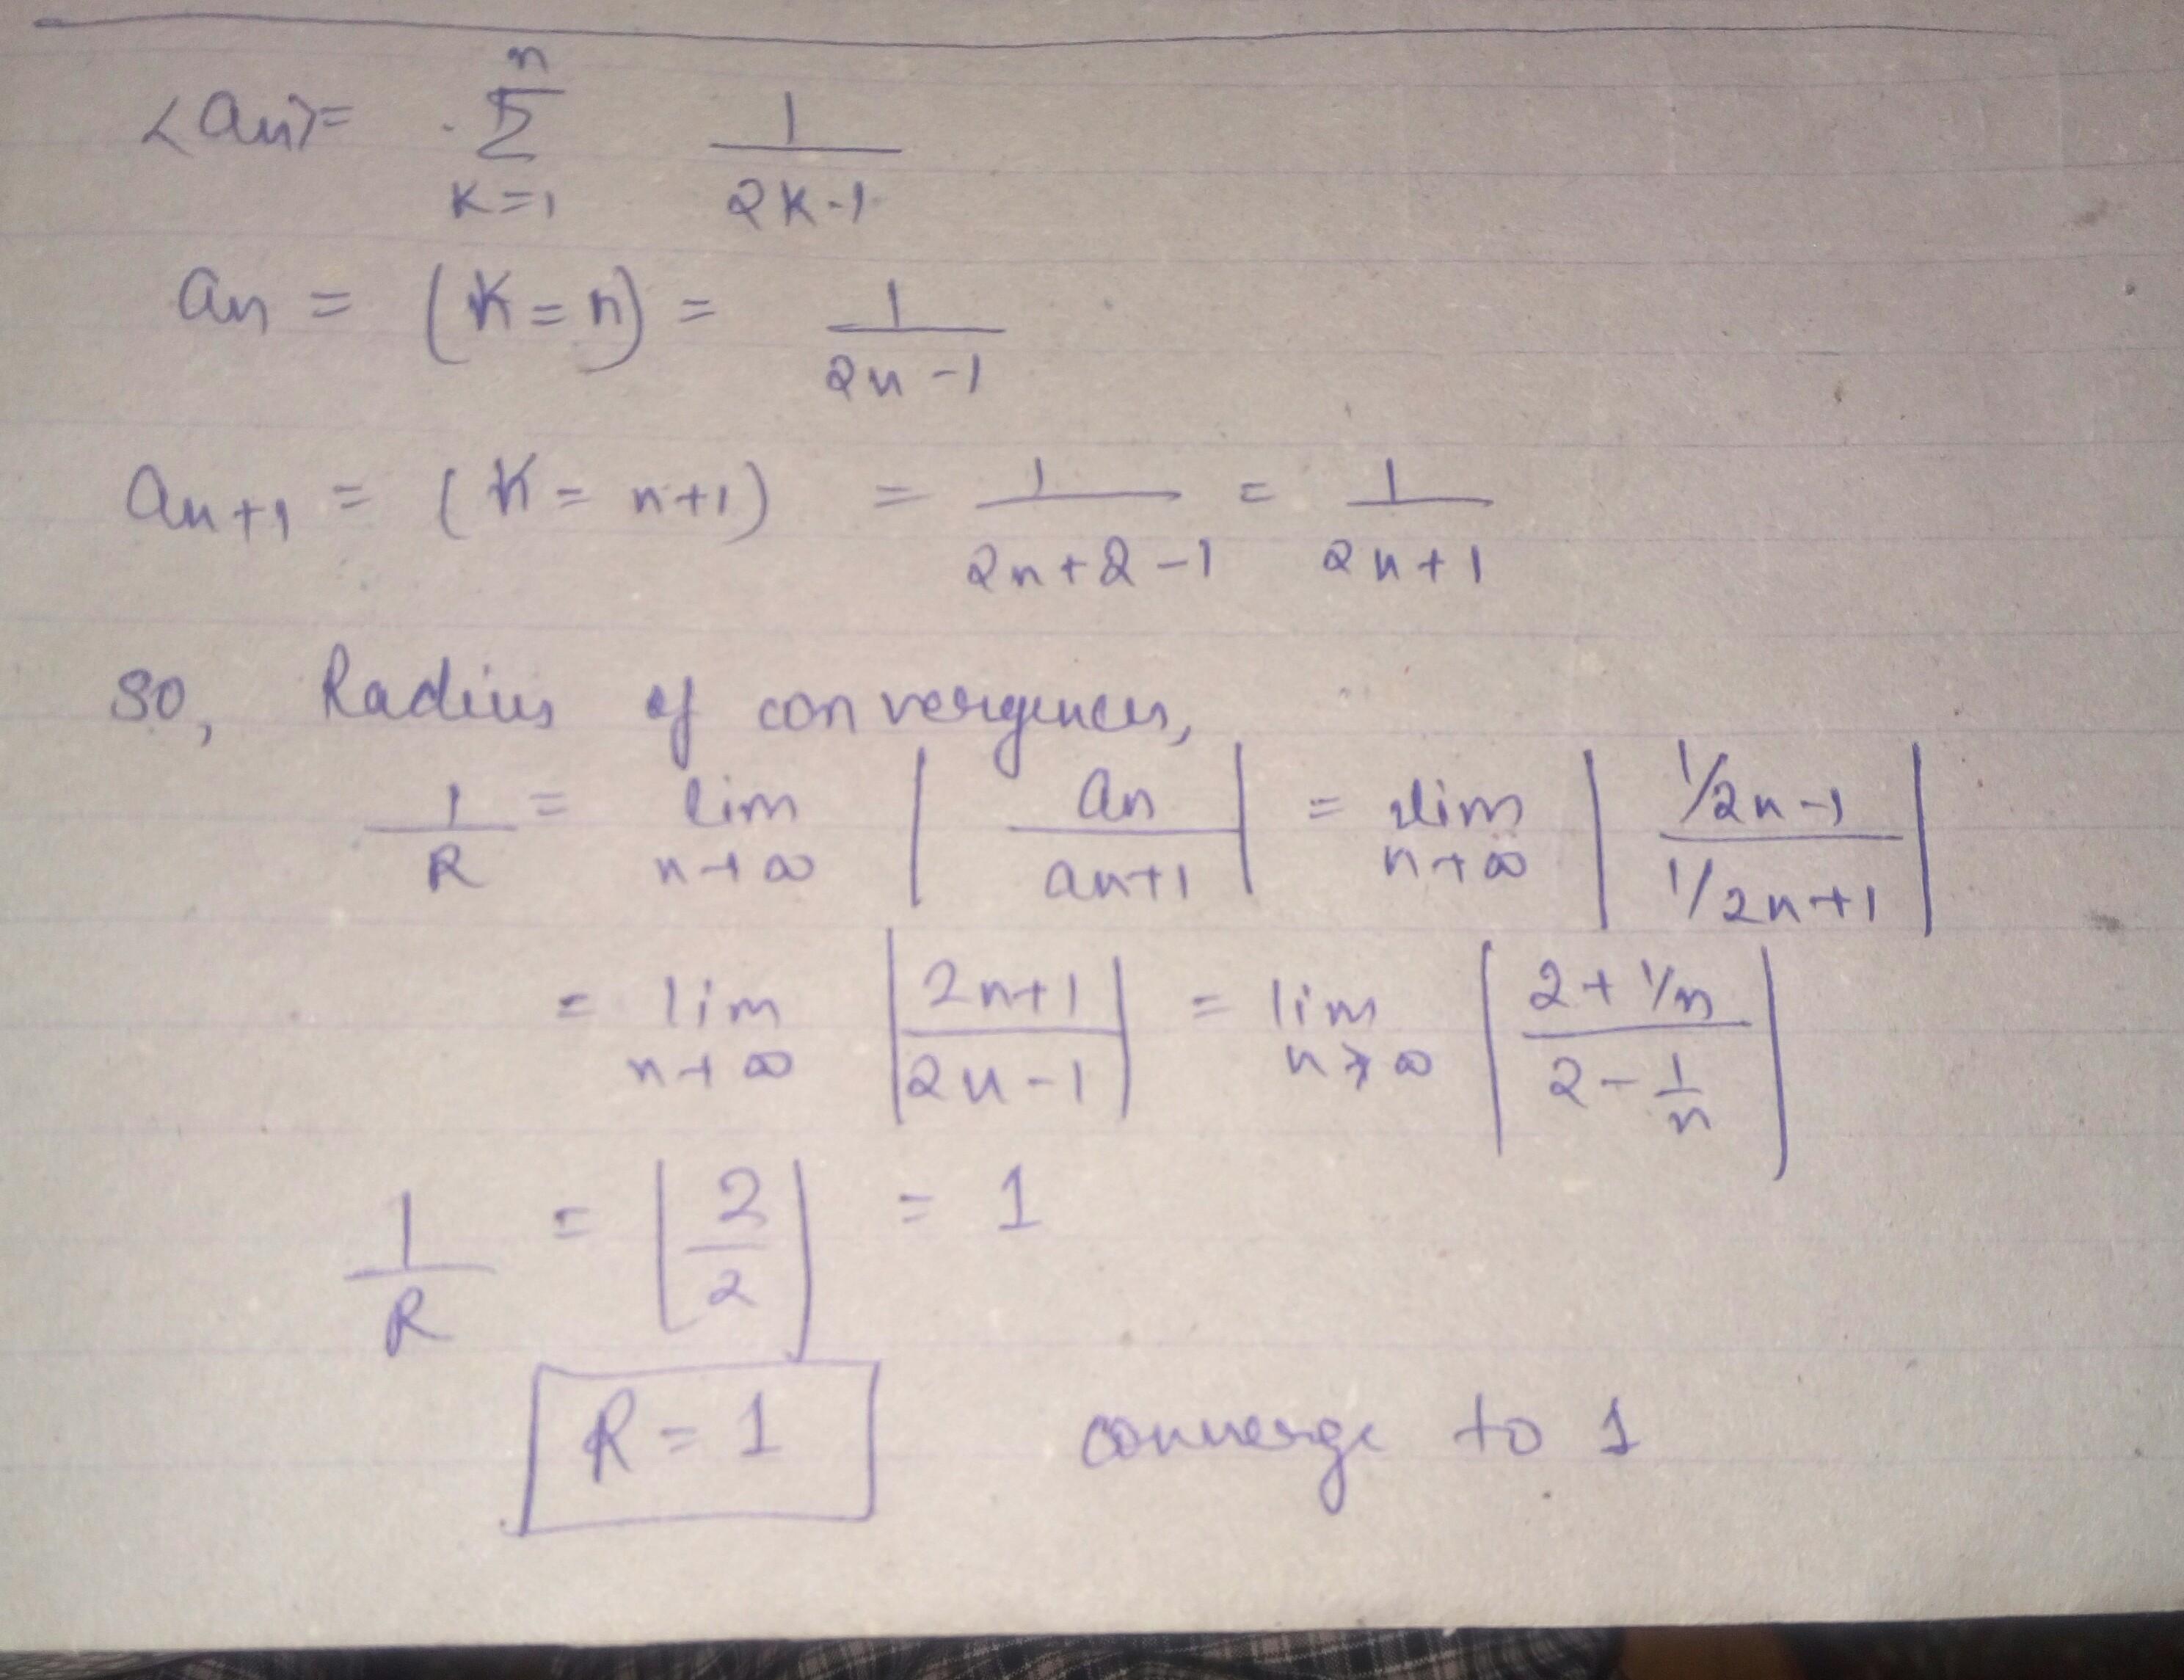 <an>= Σ_{k=1}^{n} 1/(2k-1)
an = (k=n) = 1/(2n-1)
an+1 = (k = n+1) = 1/(2n+2-1) = 1/(2n+1)
So, Radius of convergences,
1/R = lim_{n→∞} | an/an+1 | = lim_{n→∞} | (1/2n-1)/(1/2n+1) |
= lim_{n→∞} | (2n+1)/(2n-1) | = lim_{n→∞} | (2+1/n)/(2-1/n) |
1/R = | 2/2 | = 1
R = 1 converge to 1